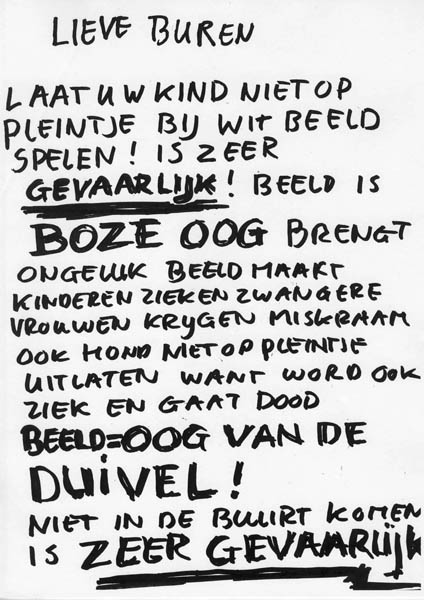 LIEVE BUREN
LAAT UW KIND NIET OP
PLEINTJE BIJ WIT BEELD
SPELEN! IS ZEER
GEVAARLIJK! BEELD IS
BOZE OOG BRENGT
ONGELUK BEELD MAAKT
KINDEREN ZIEK EN ZWANGERE
VROUWEN KRYGEN MISKRAAM
OOK HOND NIET OP PLEINTJE
UITLATEN WANT WORD OOK
ZIEK EN GAAT DOOD
BEELD=OOG VAN DE
DUIVEL!
NIET IN DE BUUIRT KOMEN
IS ZEER GEVAARLIJK